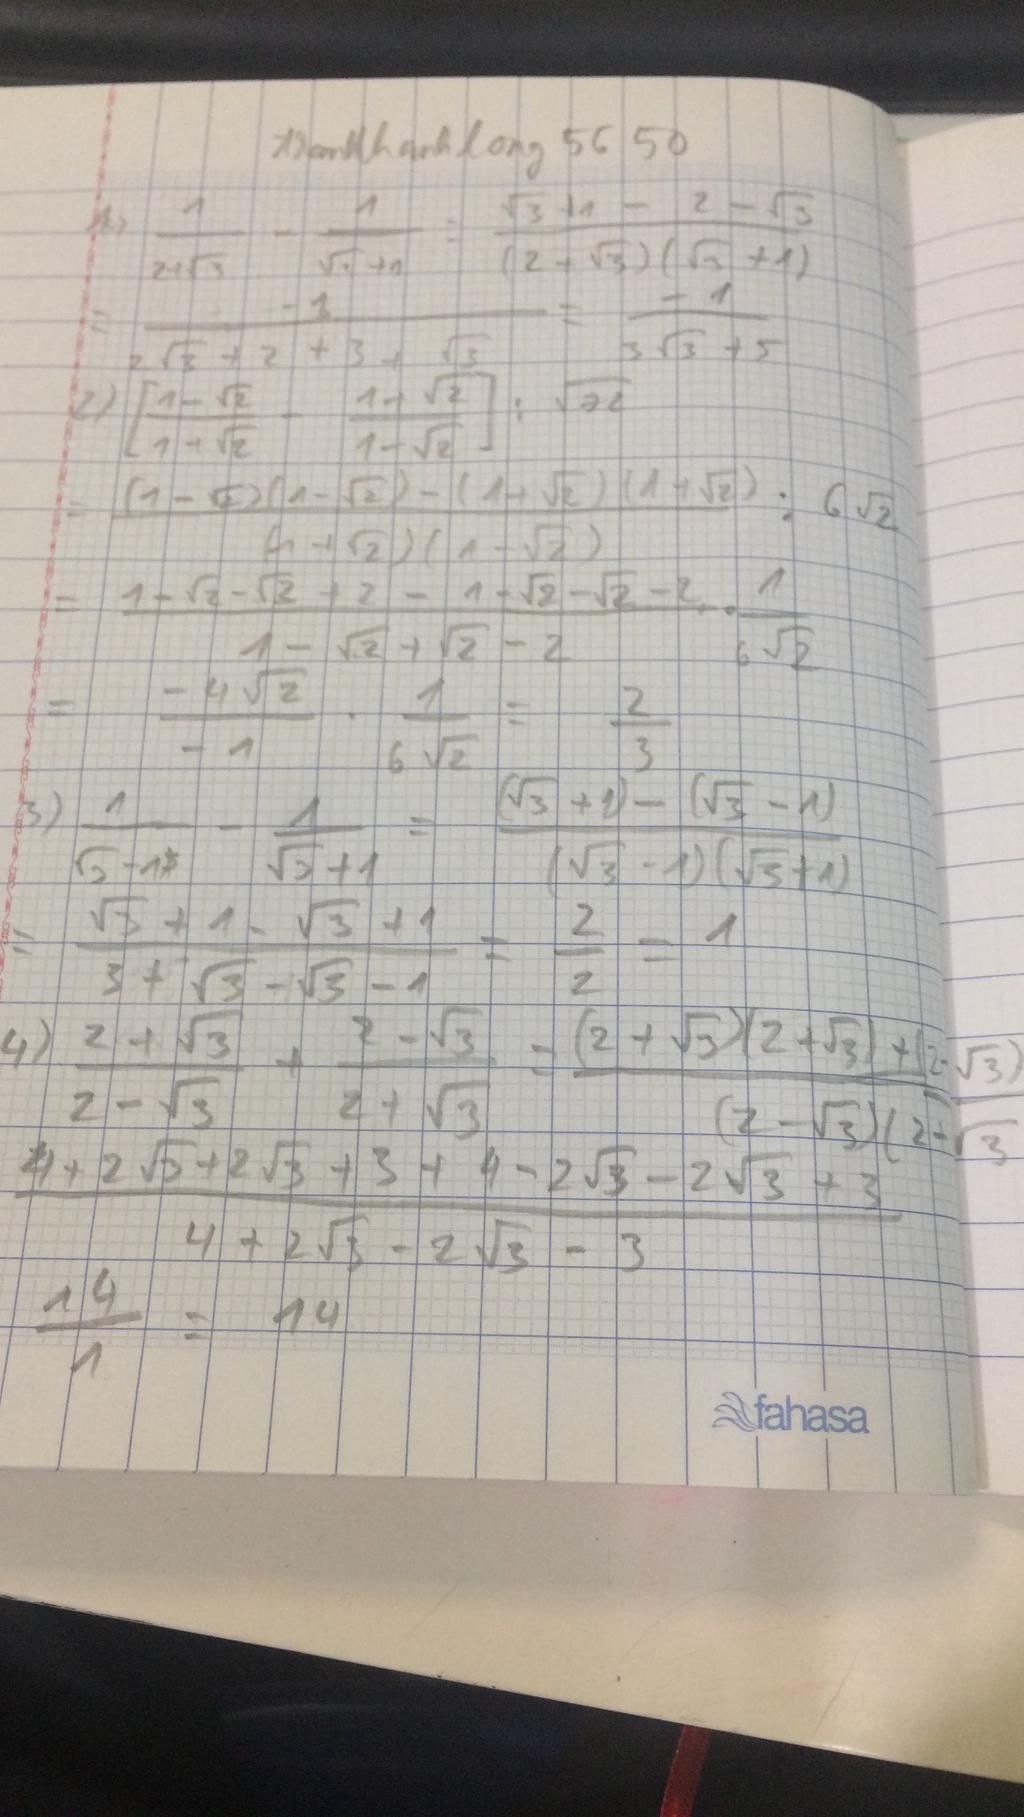 5650
1) 1/(2+√3) - 1/(√3+1) = (√3+1 - 2-√3)/((2+√3)(√3+1))
= -1/(2√3+2+3+√3) = -1/(3√3+5)
2) [(1-√2)/(1+√2) - (1+√2)/(1-√2)] : √72
= ((1-√2)(1-√2)-(1+√2)(1+√2))/((1+√2)(1-√2)) : 6√2
= (1-√2-√2+2-1-√2-√2-2)/(1-√2+√2-2) · 1/(6√2)
= (-4√2)/(-1) · 1/(6√2) = 2/3
3) 1/(√3-1) - 1/(√3+1) = ((√3+1)-(√3-1))/((√3-1)(√3+1))
= (√3+1-√3+1)/(3+√3-√3-1) = 2/2 = 1
4) (2+√3)/(2-√3) + (2-√3)/(2+√3) = ((2+√3)(2+√3)+(2-√3)/((2-√3)(2+√3
(4+2√3+2√3+3+4-2√3-2√3+3)/(4+2√3-2√3-3)
14/1 = 14
fahasa